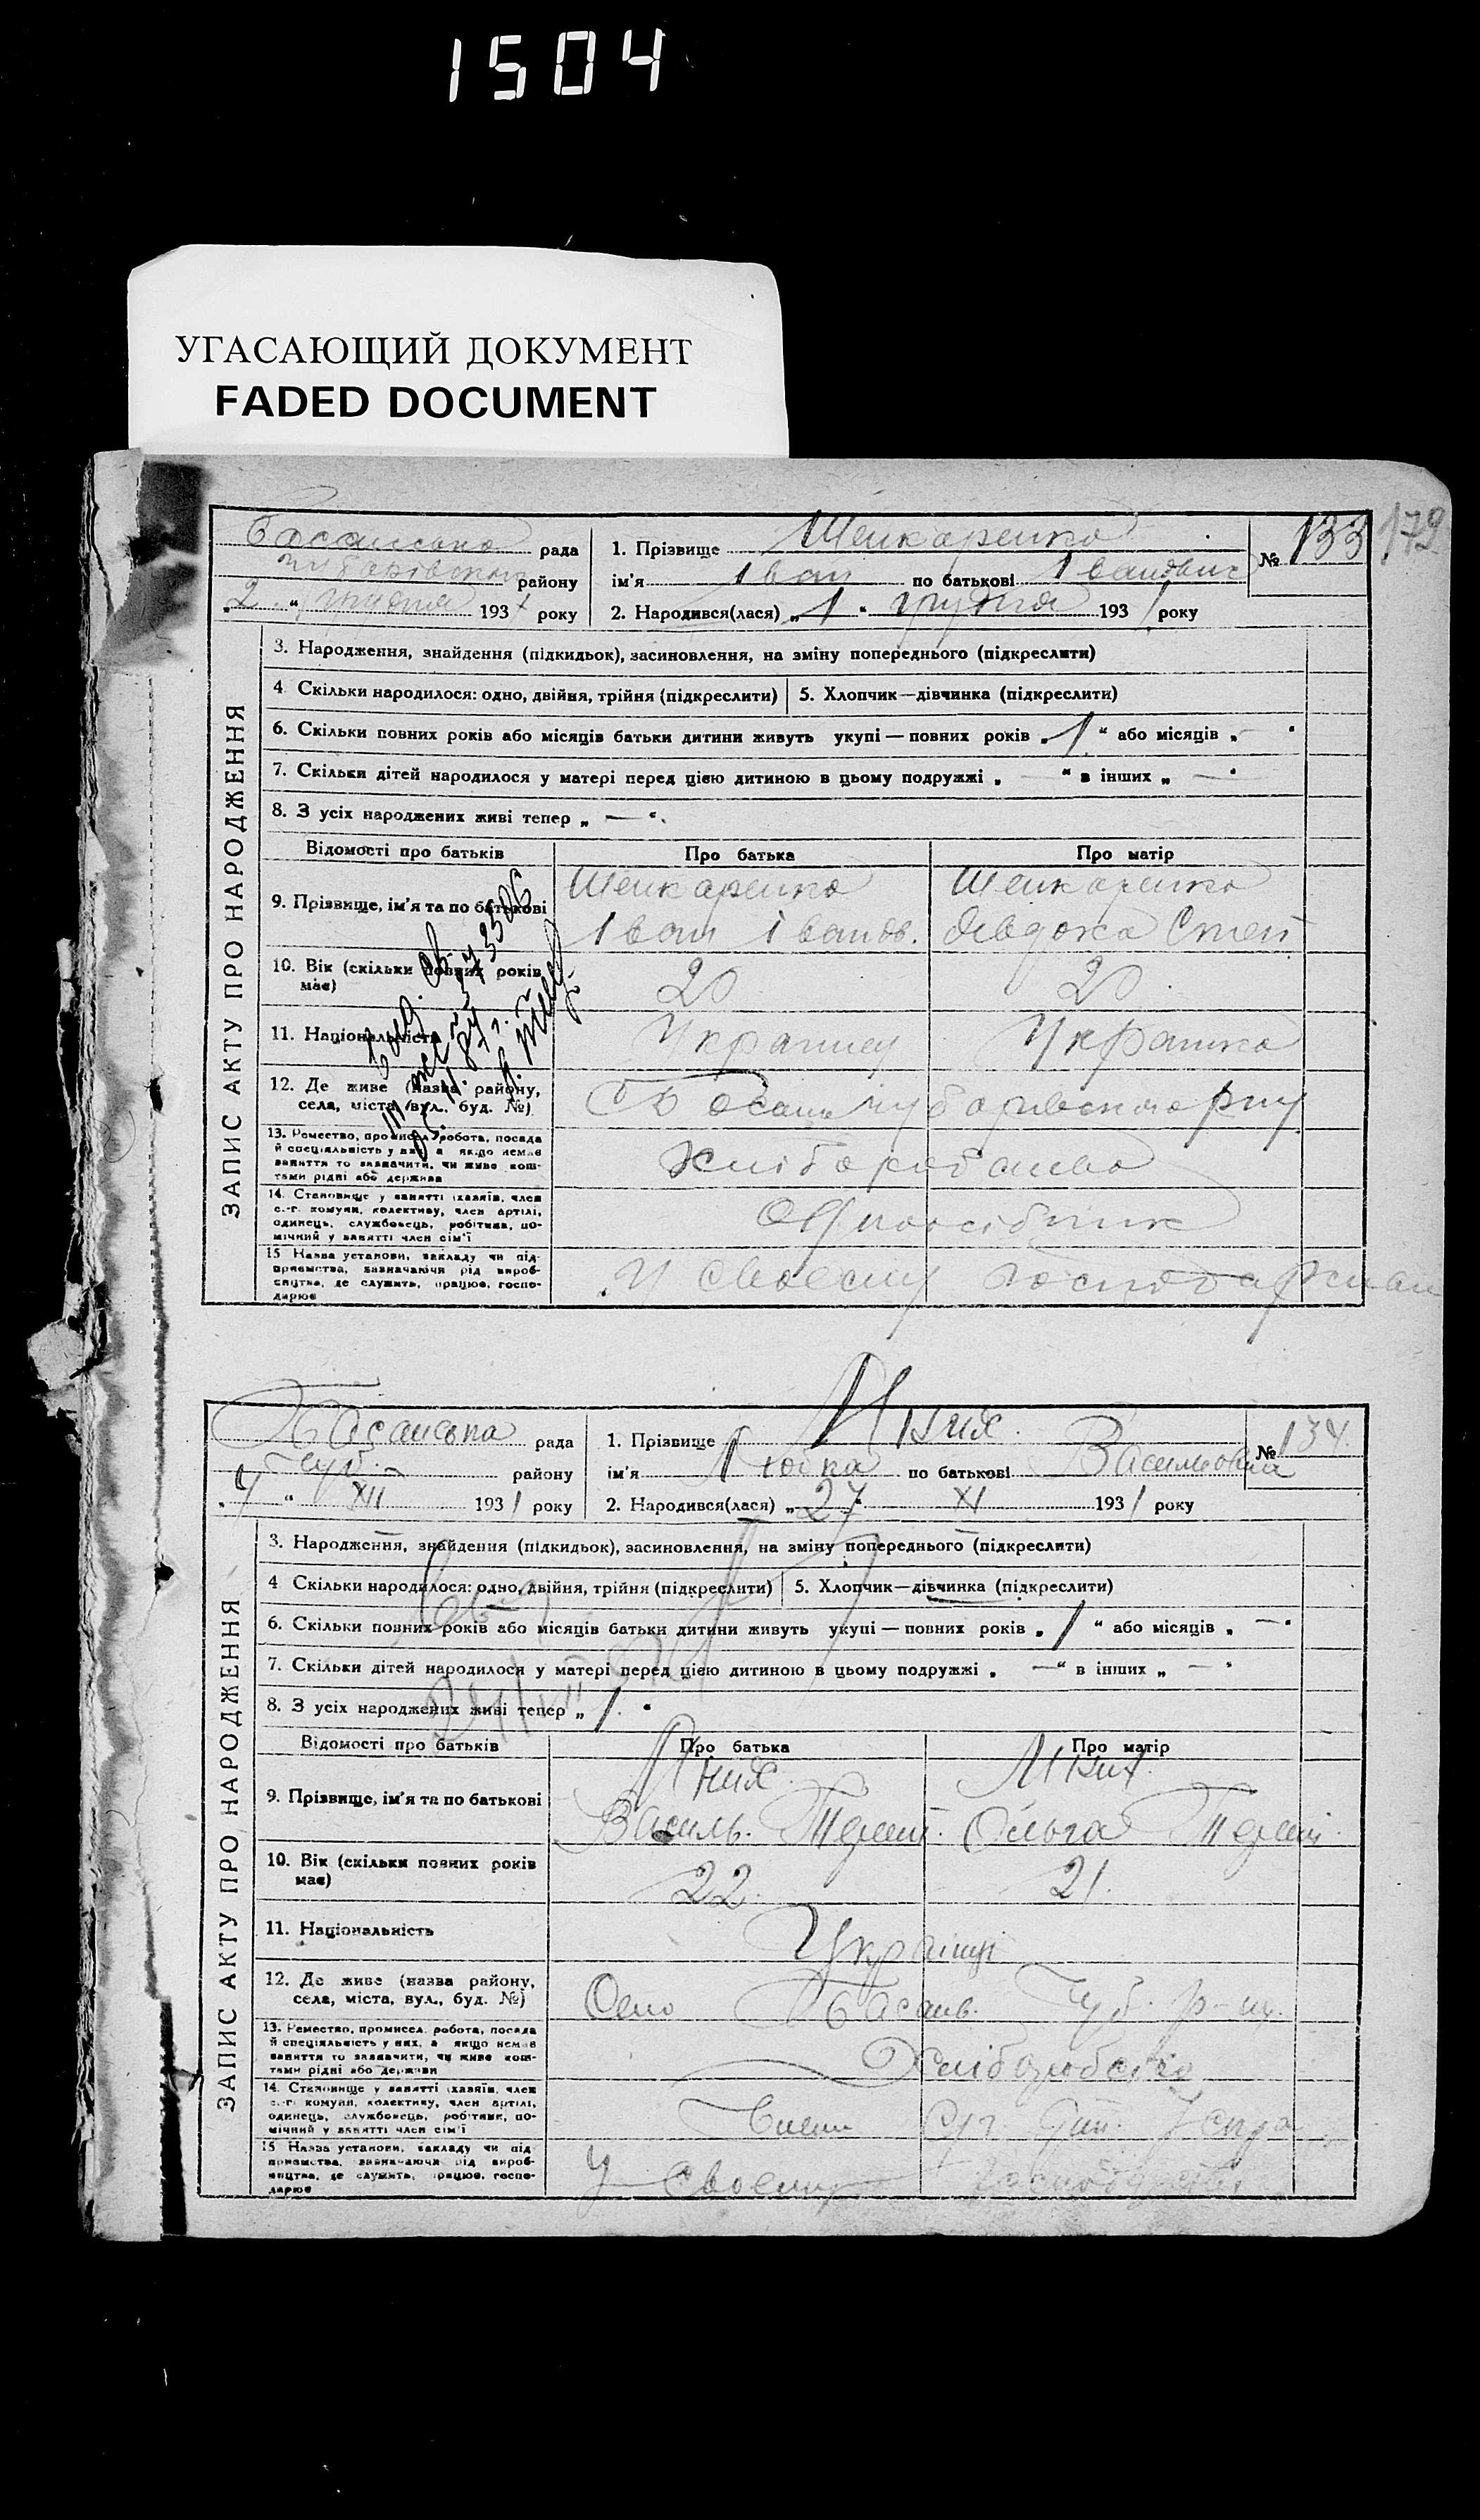 1504
УГАСАЮЩИЙ ДОКУМЕНТ
FADED DOCUMENT
179
Басанська рада
Чубарівського району
„2“ грудня 1931 року
1. Прізвище Шенкаренко
ім'я Іван по батькові Іванович
2. Народився(лася) „1“ грудня 1931 року
№ 133
ЗАПИС АКТУ ПРО НАРОДЖЕННЯ
3. Народження, знайдення (підкидьок), засиновлення, на зміну попереднього (підкреслити)
4 Скільки народилося: одно, двійня, трійня (підкреслити) 5. Хлопчик—дівчинка (підкреслити)
6. Скільки повних років або місяців батьки дитини живуть укупі — повних років „1“ або місяців „—“
7. Скільки дітей народилося у матері перед цією дитиною в цьому подружжі „—“ в інших „—“
8. З усіх народжених живі тепер „—“.
Відомості про батьків Про батька Про матір
9. Прізвище, ім'я та по батькові
Шенкаренко Шенкаренко
Іван Іванов. Явдоха Степ
10. Вік (скільки повних років має)
20 20
11. Національність
Українец Українка
12. Де живе (назва району, села, міста, вул., буд. №)
С Басань Чубарівського р-ну
13. Ремество, промисел, робота, посада й спеціяльність у них, а якщо немає заняття то зазначити, чи живе коштами рідні або держави
Хліборобство
14. Становище у занятті (хазяїн, член с.-г. комуни, колективу, член артілі, одинець, службовець, робітник, помічний у занятті член сім'ї
Одноосібник
15 Назва установи, закладу чи підприємства, зазначаючи рід виробництва, де служить, працює, господарює
У своєму господарстві
Басанська рада
Чуб. району
„4“ XII 1931 року
1. Прізвище Мних.
ім'я Любка по батькові Васильовна
2. Народився(лася) „27“ XI 1931 року
№ 134.
ЗАПИС АКТУ ПРО НАРОДЖЕННЯ
3. Народження, знайдення (підкидьок), засиновлення, на зміну попереднього (підкреслити)
4 Скільки народилося: одно, двійня, трійня (підкреслити) 5. Хлопчик—дівчинка (підкреслити)
6. Скільки повних років або місяців батьки дитини живуть укупі — повних років „1“ або місяців „—“
7. Скільки дітей народилося у матері перед цією дитиною в цьому подружжі „—“ в інших „—“
8. З усіх народжених живі тепер „1.“
Відомості про батьків Про батька Про матір
9. Прізвище, ім'я та по батькові
Мних. Мних.
Василь. Терент. Ольга Терент.
10. Вік (скільки повних років має)
22. 21.
11. Національність
Українці
12. Де живе (назва району, села, міста, вул., буд. №)
Село Басань. Чуб. р-ну.
13. Ремество, промисел, робота, посада й спеціяльність у них, а якщо немає заняття то зазначити, чи живе коштами рідні або держави
Хліборобство
14. Становище у занятті (хазяїн, член с.-г. комуни, колективу, член артілі, одинець, службовець, робітник, помічний у занятті член сім'ї
Член
15 Назва установи, закладу чи підприємства, зазначаючи рід виробництва, де служить, працює, господарює
У своєму господарстві